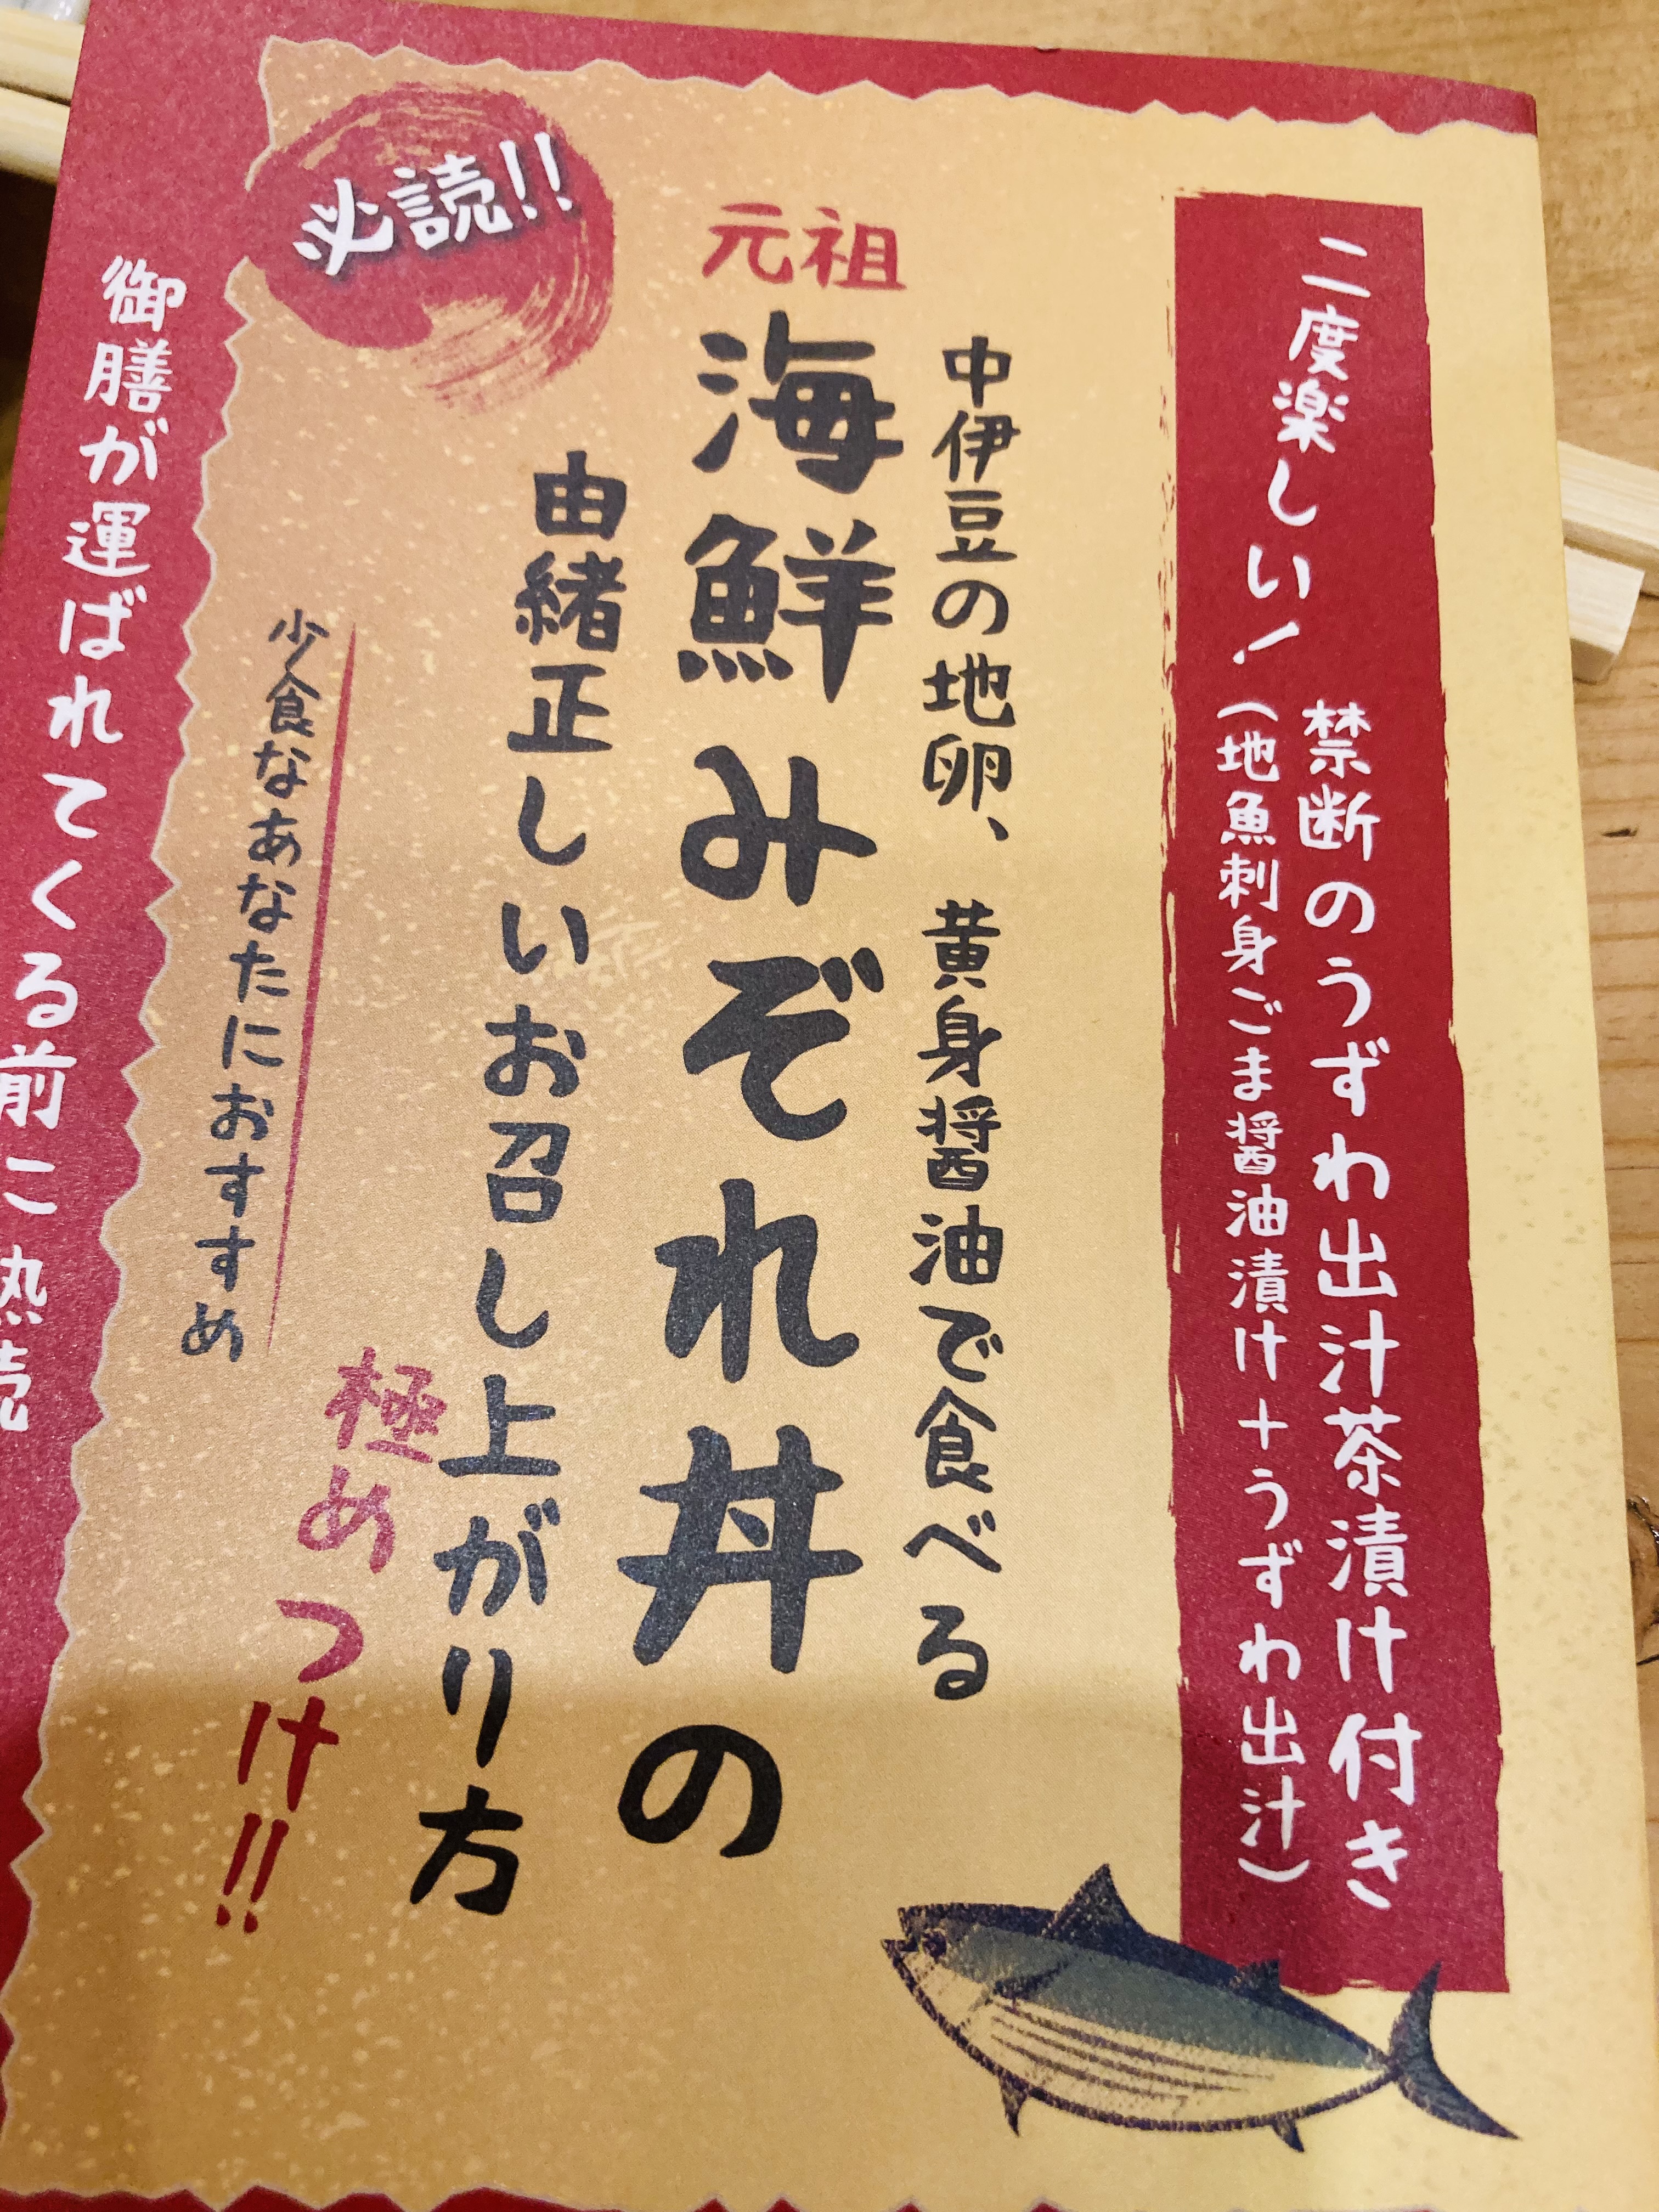 二度楽しい!
禁断のうずわ出汁茶漬け付き
(地魚刺身ごま醤油漬け+うずわ出汁)
中伊豆の地卵、黄身醤油で食べる
元祖
海鮮みぞれ丼の
由緒正しいお召し上がり方
極めつけ!!
少食なあなたにおすすめ
必読!!
御膳が運ばれてくる前に熱読